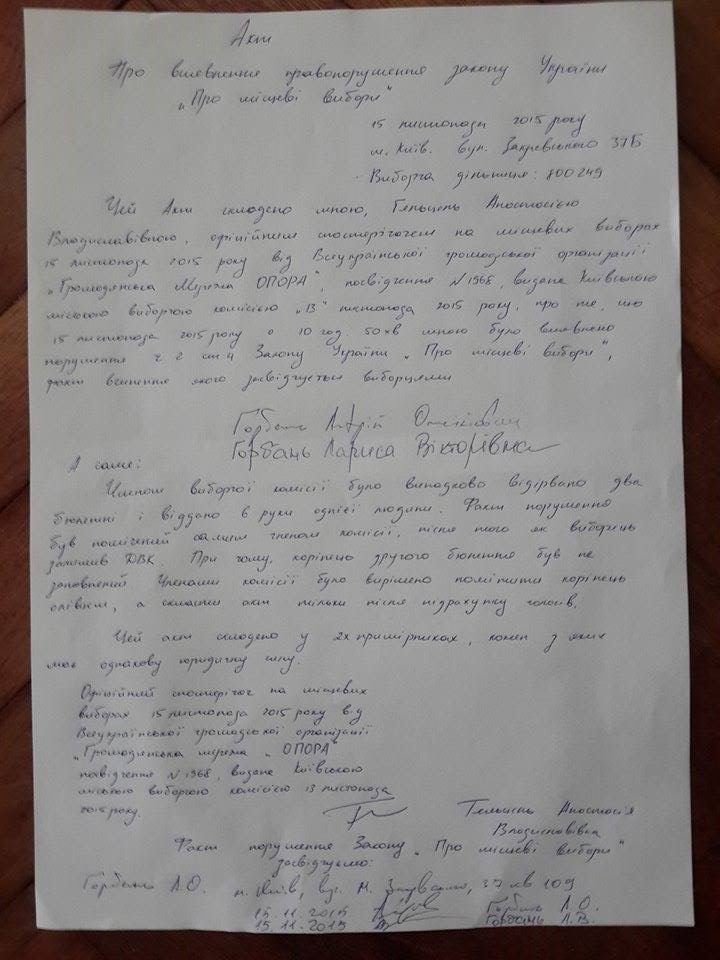 Акт
Про виявлення правопорушення закону України
„Про місцеві вибори"
15 листопада 2015 року
м. Київ. вул. Закревського 37Б
Виборча дільниця: 800249
Цей Акт складено мною, Гельцель Анастасією
Владиславівною, офіційним спостерігачем на місцевих виборах
15 листопада 2015 року від Всеукраїнської громадської організації
„Громадянська Мережа ОПОРА", посвідчення N 1968, видане Київською
міською виборчою комісією „13" листопада 2015 року, про те, що
15 листопада 2015 року о 10 год. 50 хв мною було виявлено
порушення ч. 2 ст 4 Закону України „Про місцеві вибори",
факт вчинення якого засвідчується виборцями
Горбань
Горбань Лариса Вікторівна
А саме:
Членом виборчої комісії було випадково відірвано два
бюлетні і віддано в руки однієї людини. Факт порушення
був помічений самим членом комісії, після того як виборець
залишив ДВК. При чому, корінець другого бюлетня був не
заповнений. Членами комісії було вирішено помітити корінець
олівцем, а скласти акт тільки після підрахунку голосів.
Цей акт складено у 2х примірниках, кожен з яких
має однакову юридичну силу.
Офіційний спостерігач на місцевих
виборах 15 листопада 2015 року від
Всеукраїнської громадської організації
„Громадянська мережа „ОПОРА"
посвідчення N 1968, видане Київською
міською виборчою комісією 13 листопада
2015 року.
Гельцель Анастасія
Владиславівна
Факт порушення Закону „Про місцеві вибори"
засвідчуємо:
Горбань Л.О. м. Київ, вул. М. 37 кв 109
15.11.2015 Горбань Л.О.
15.11.2015 Горбань Л.В.